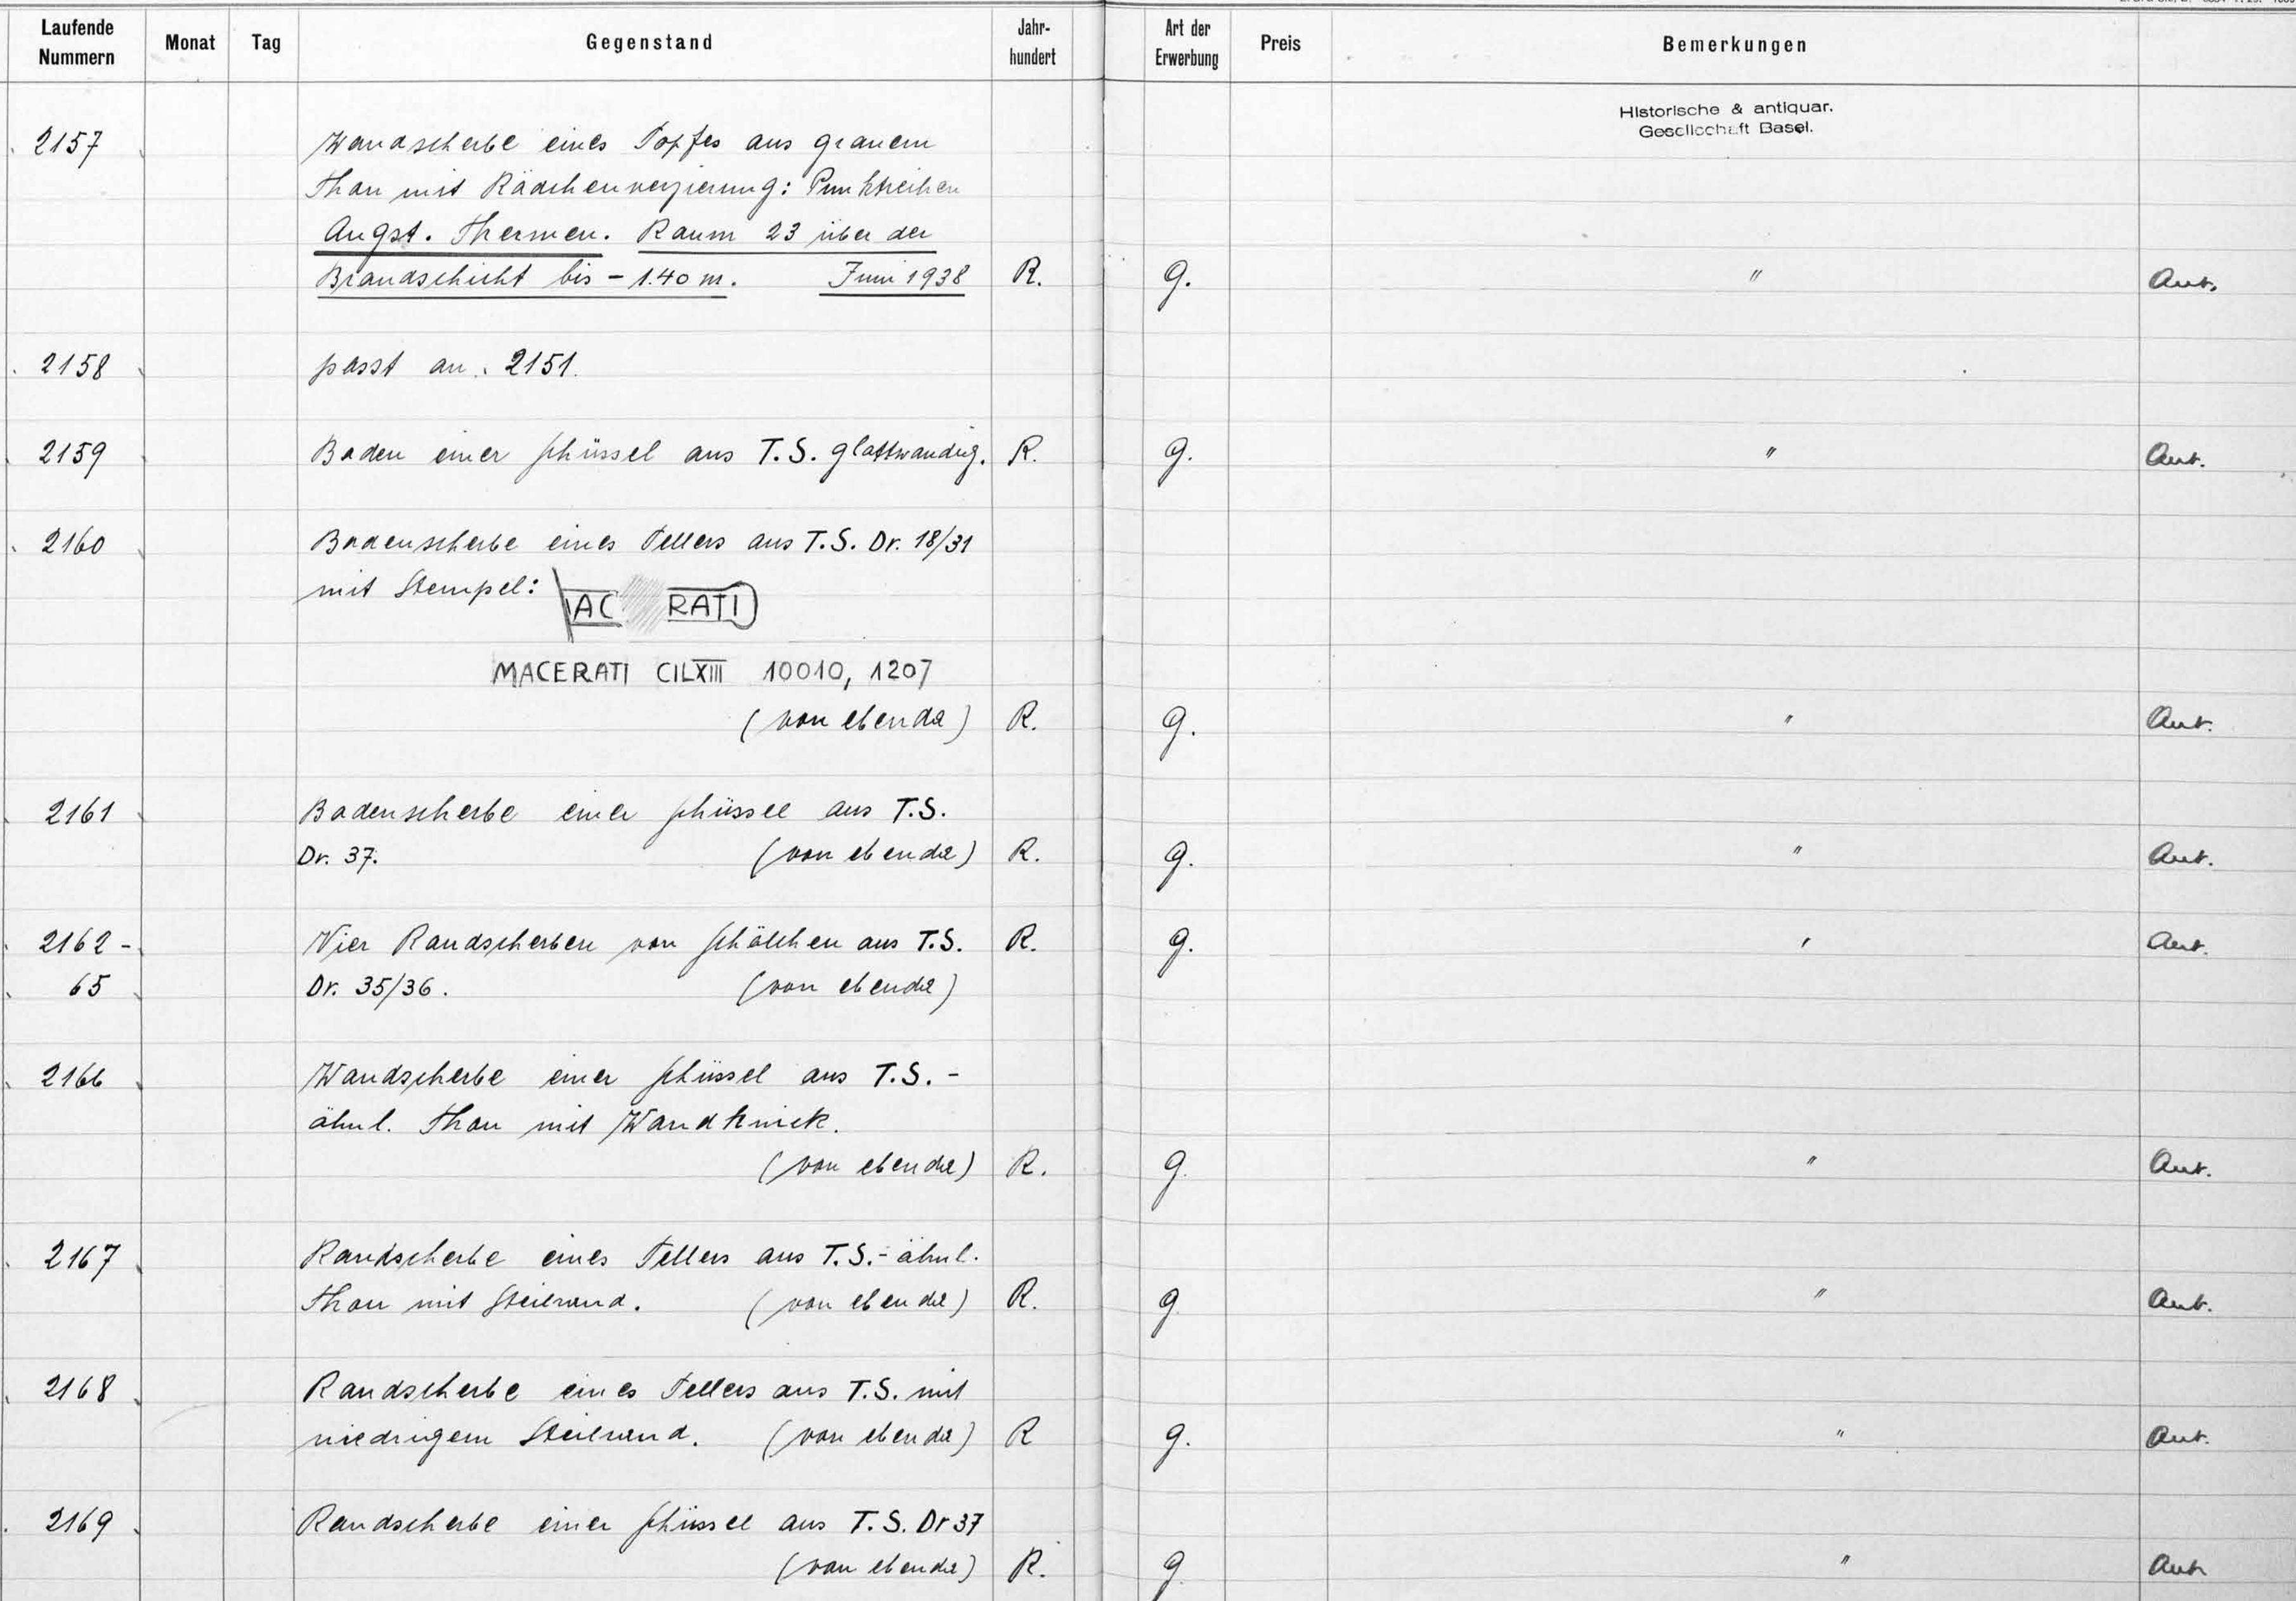 Laufende Nummern Monat Tag Gegenstand Jahr-hundert Art der Erwerbung Preis Bemerkungen
Historische & antiquar.
Gesellschaft Basel.
2157 Wandscherbe eines Topfes aus grauem
Thon mit Rädchenverzierung: Punktreihen
Augst. Thermen. Raum 23 über der
Brandschicht bis - 1.40 m. Juni 1938 R. G. " Ant.
2158 passt an 2151.
2159 Boden einer Schüssel aus T.S. glattwandig. R. G. " Ant.
2160 Bodenscherbe eines Tellers aus T.S. Dr. 18/31
mit Stempel: AC RATI
MACERATI CILXIII 10010, 1207
(von ebenda) R. G. " Ant.
2161 Bodenscherbe einer Schüssel aus T.S.
Dr. 37. (von ebenda) R. G. " Ant.
2162 - Vier Randscherben von Schälchen aus T.S. R. G. " Ant.
65 Dr. 35/36. (von ebenda)
2166 Wandscherbe einer Schüssel aus T.S.-
ähnl. Thon mit Wandknick.
(von ebenda) R. G. " Ant.
2167 Randscherbe eines Tellers aus T.S.-ähnl.
Thon mit Steilrand. (von ebenda) R. G " Ant.
2168 Randscherbe eines Tellers aus T.S. mit
niedrigem Steilrand. (von ebenda) R G. " Ant.
2169 Randscherbe einer Schüssel aus T.S. Dr 37
(von ebenda) R. G. " Ant